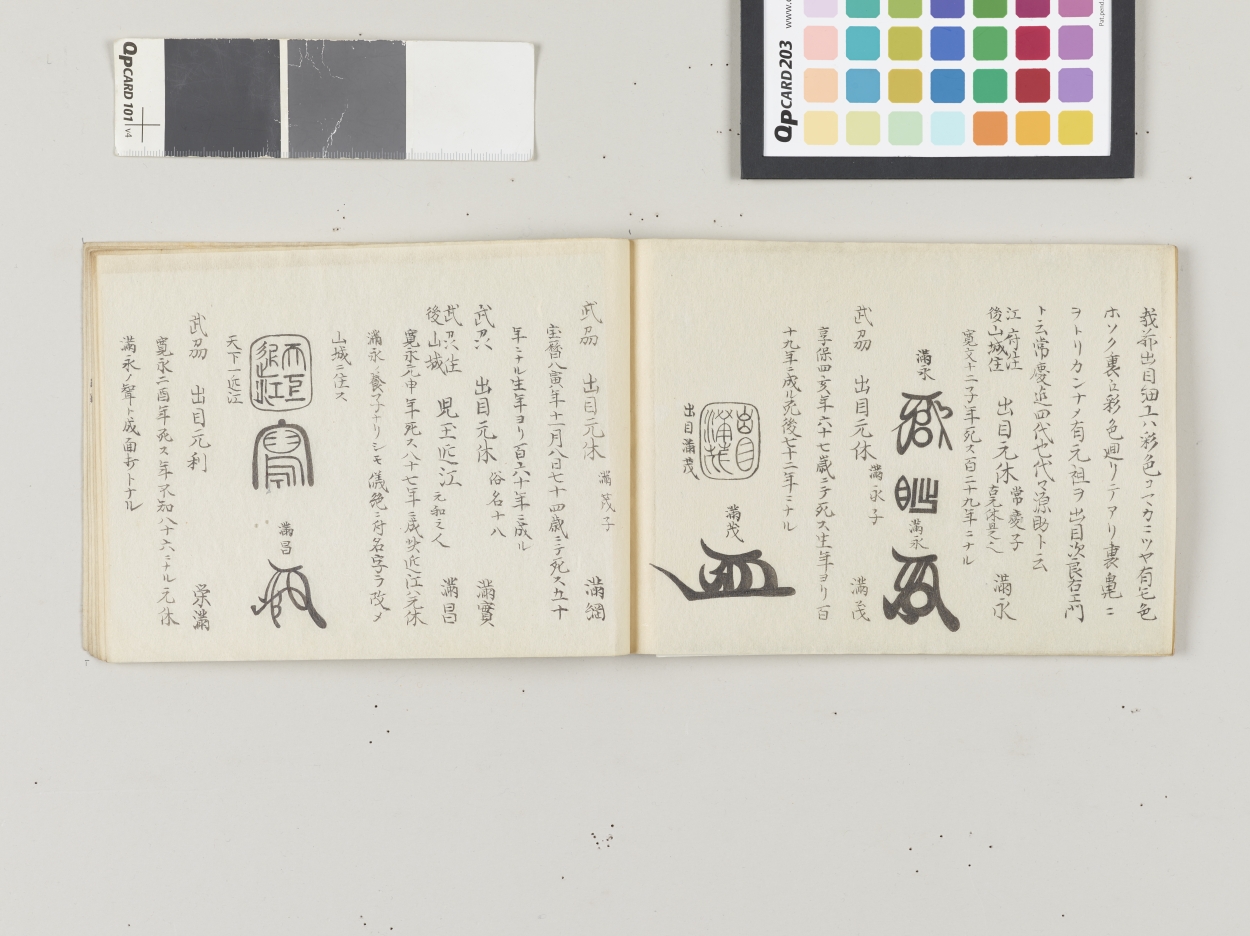 QpCARD 101 v4
QpCARD 203
www.
Pat.pend.
ホソク裏ニ彩色廻リテアリ裏鼻ニ
ヲトリカンナメ有元祖ヲ出目次良右エ門
ト云常慶迄四代七代マ源助ト云
江府住
後山城住
出目元休
常慶子
満永
寛文十二子年死ス百二十九年ニナル
満永
満永
武刕 出目元休 満永子 満茂
享保四亥年六十七歳ニテ死ス生年ヨリ百
十九年ニ成ル死後七十二年ニナル
満茂
出目満茂
出目満茂
武刕 出目元休 満茂子 満綱
宝暦八寅年十一月八日七十四歳ニテ死ス五十
年ニナル生年ヨリ百六十年ニ成ル
武刕 出目元休 俗名十八 満實
武刕住
後山城
児玉近江
元和之人
満昌
寛永元申年死ス八十七年ニ成
近江ハ元休
満永ニ養子ナリシモ儀絶ニ付名字ヲ改メ
山城ニ住ス
天下一近江
天下一近江
満昌
武刕 出目元利 栄満
寛永二酉年死ス年不知八十六ニナル元休
満永ノ聟ト成面打トナル